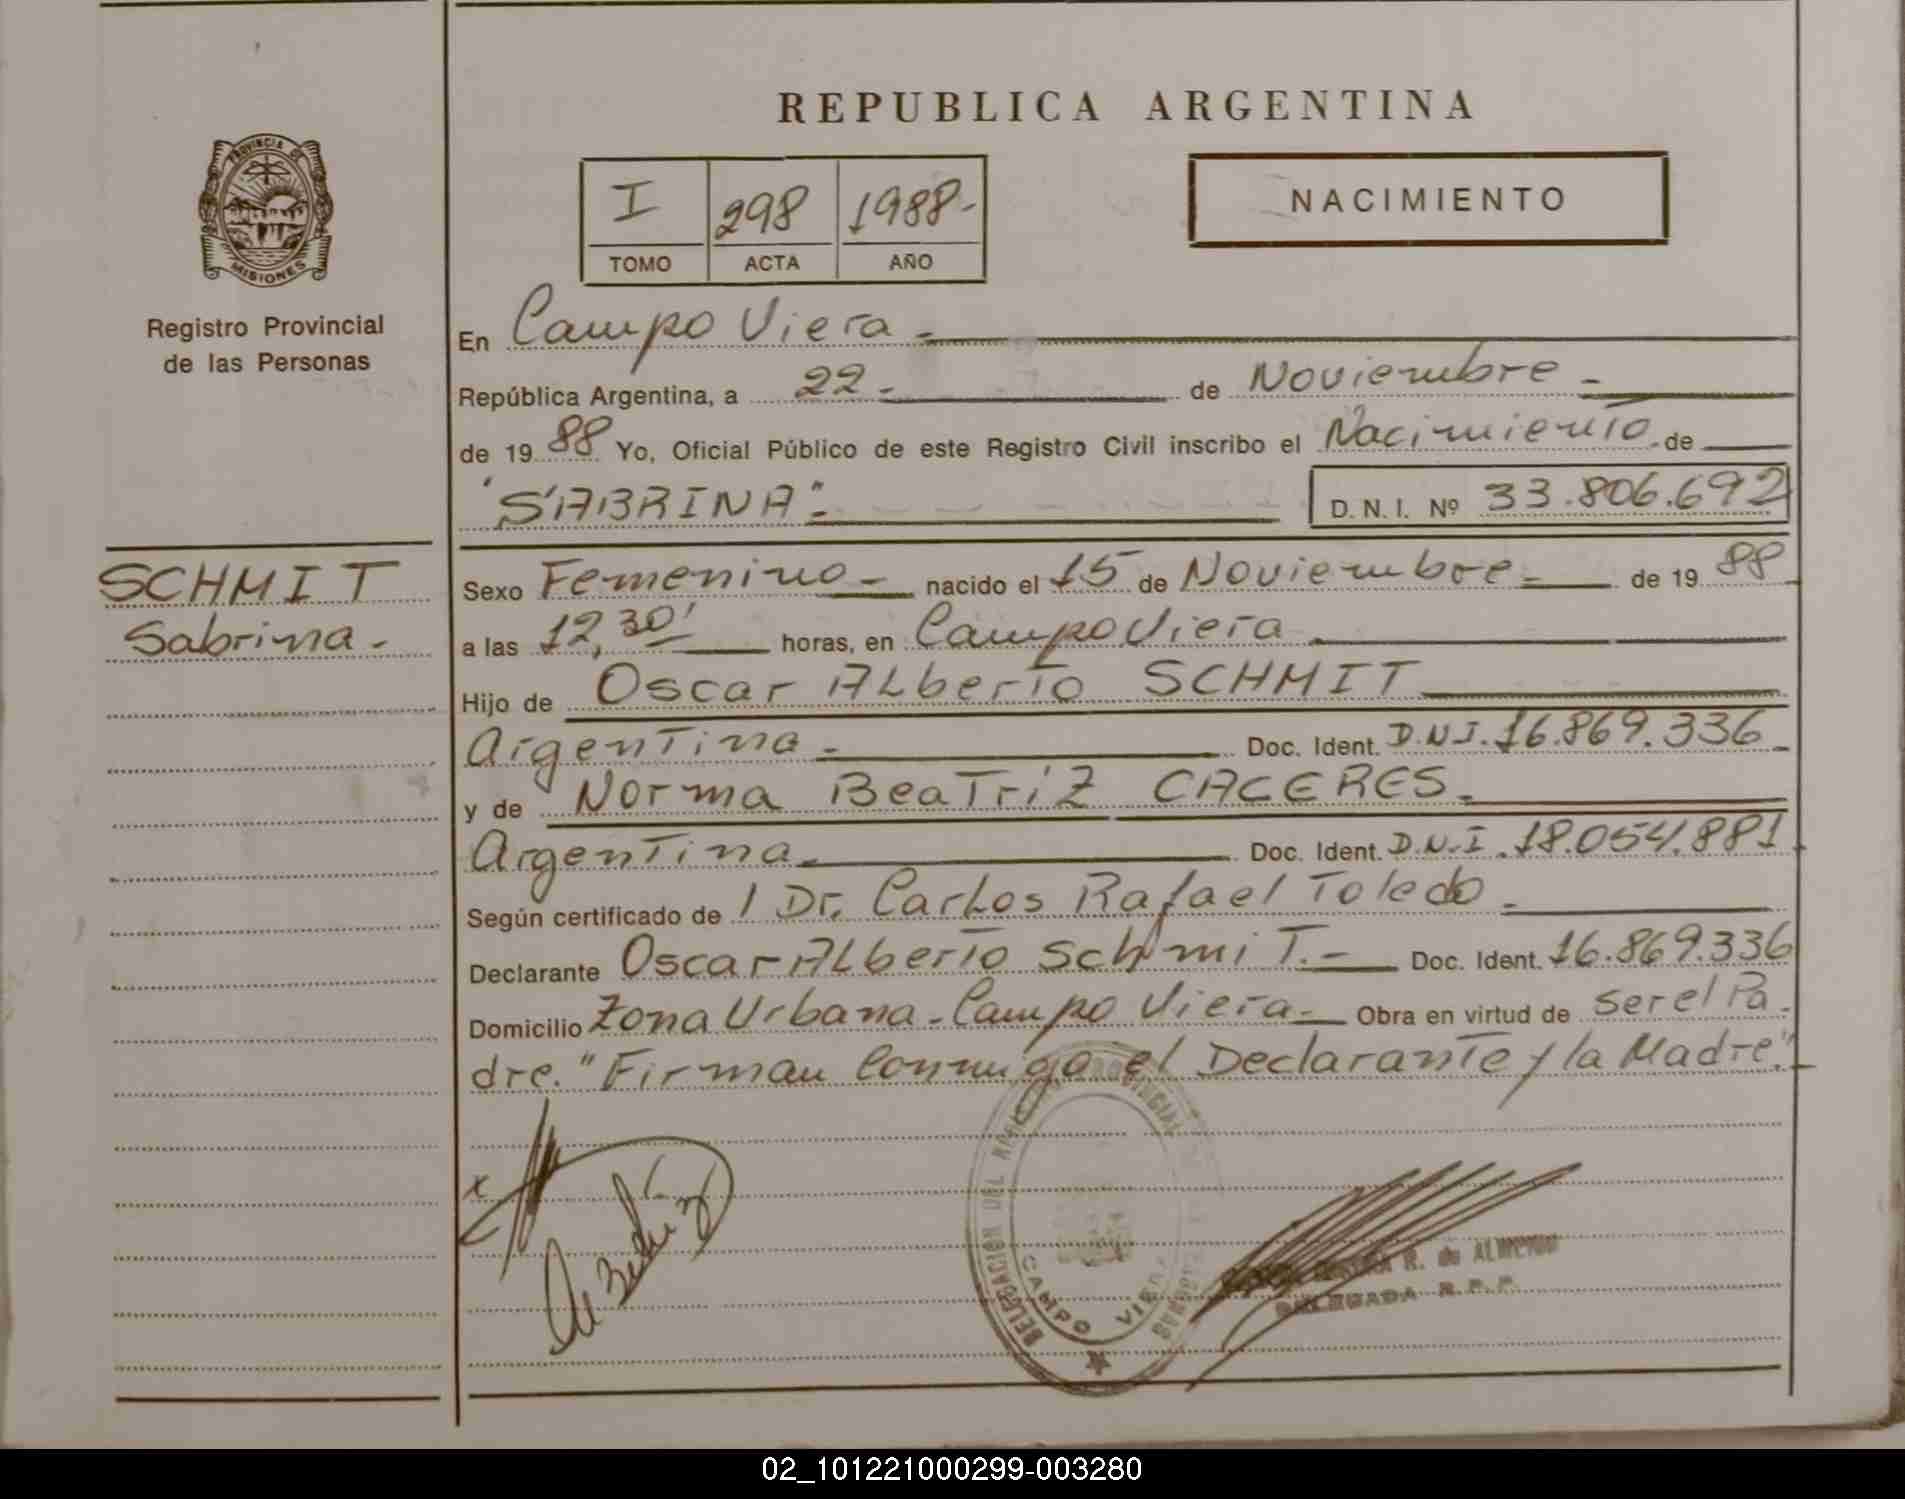 REPUBLICA ARGENTINA
PROVINCIA DE
MISIONES
Registro Provincial
de las Personas
I 298 1988-
TOMO ACTA AÑO
NACIMIENTO
En Campo Viera -
República Argentina, a 22 - de Noviembre -
de 19 88 Yo, Oficial Público de este Registro Civil inscribo el Nacimiento de
"SABRINA"- D. N. I. Nº 33.806.692
SCHMIT
Sabrina -
Sexo Femenino - nacido el 15 de Noviembre - de 19 88
a las 12,30' horas, en Campo Viera
Hijo de Oscar Alberto SCHMIT
Argentina - Doc. Ident. D.N.I. 16.869.336 -
y de Norma Beatriz CACERES -
Argentina - Doc. Ident. D.N.I. 18.054.881
Según certificado de / Dr. Carlos Rafael Toledo -
Declarante Oscar Alberto Schmit.- Doc. Ident. 16.869.336
Domicilio Zona Urbana - Campo Viera - Obra en virtud de ser el Pa-
dre. "Firman Conmigo el Declarante y la Madre"-
x
DELEGACION DEL PROVINCIAL
CAMPO VIERA
R. de
DELEGADA R.P.P.
02_101221000299-003280